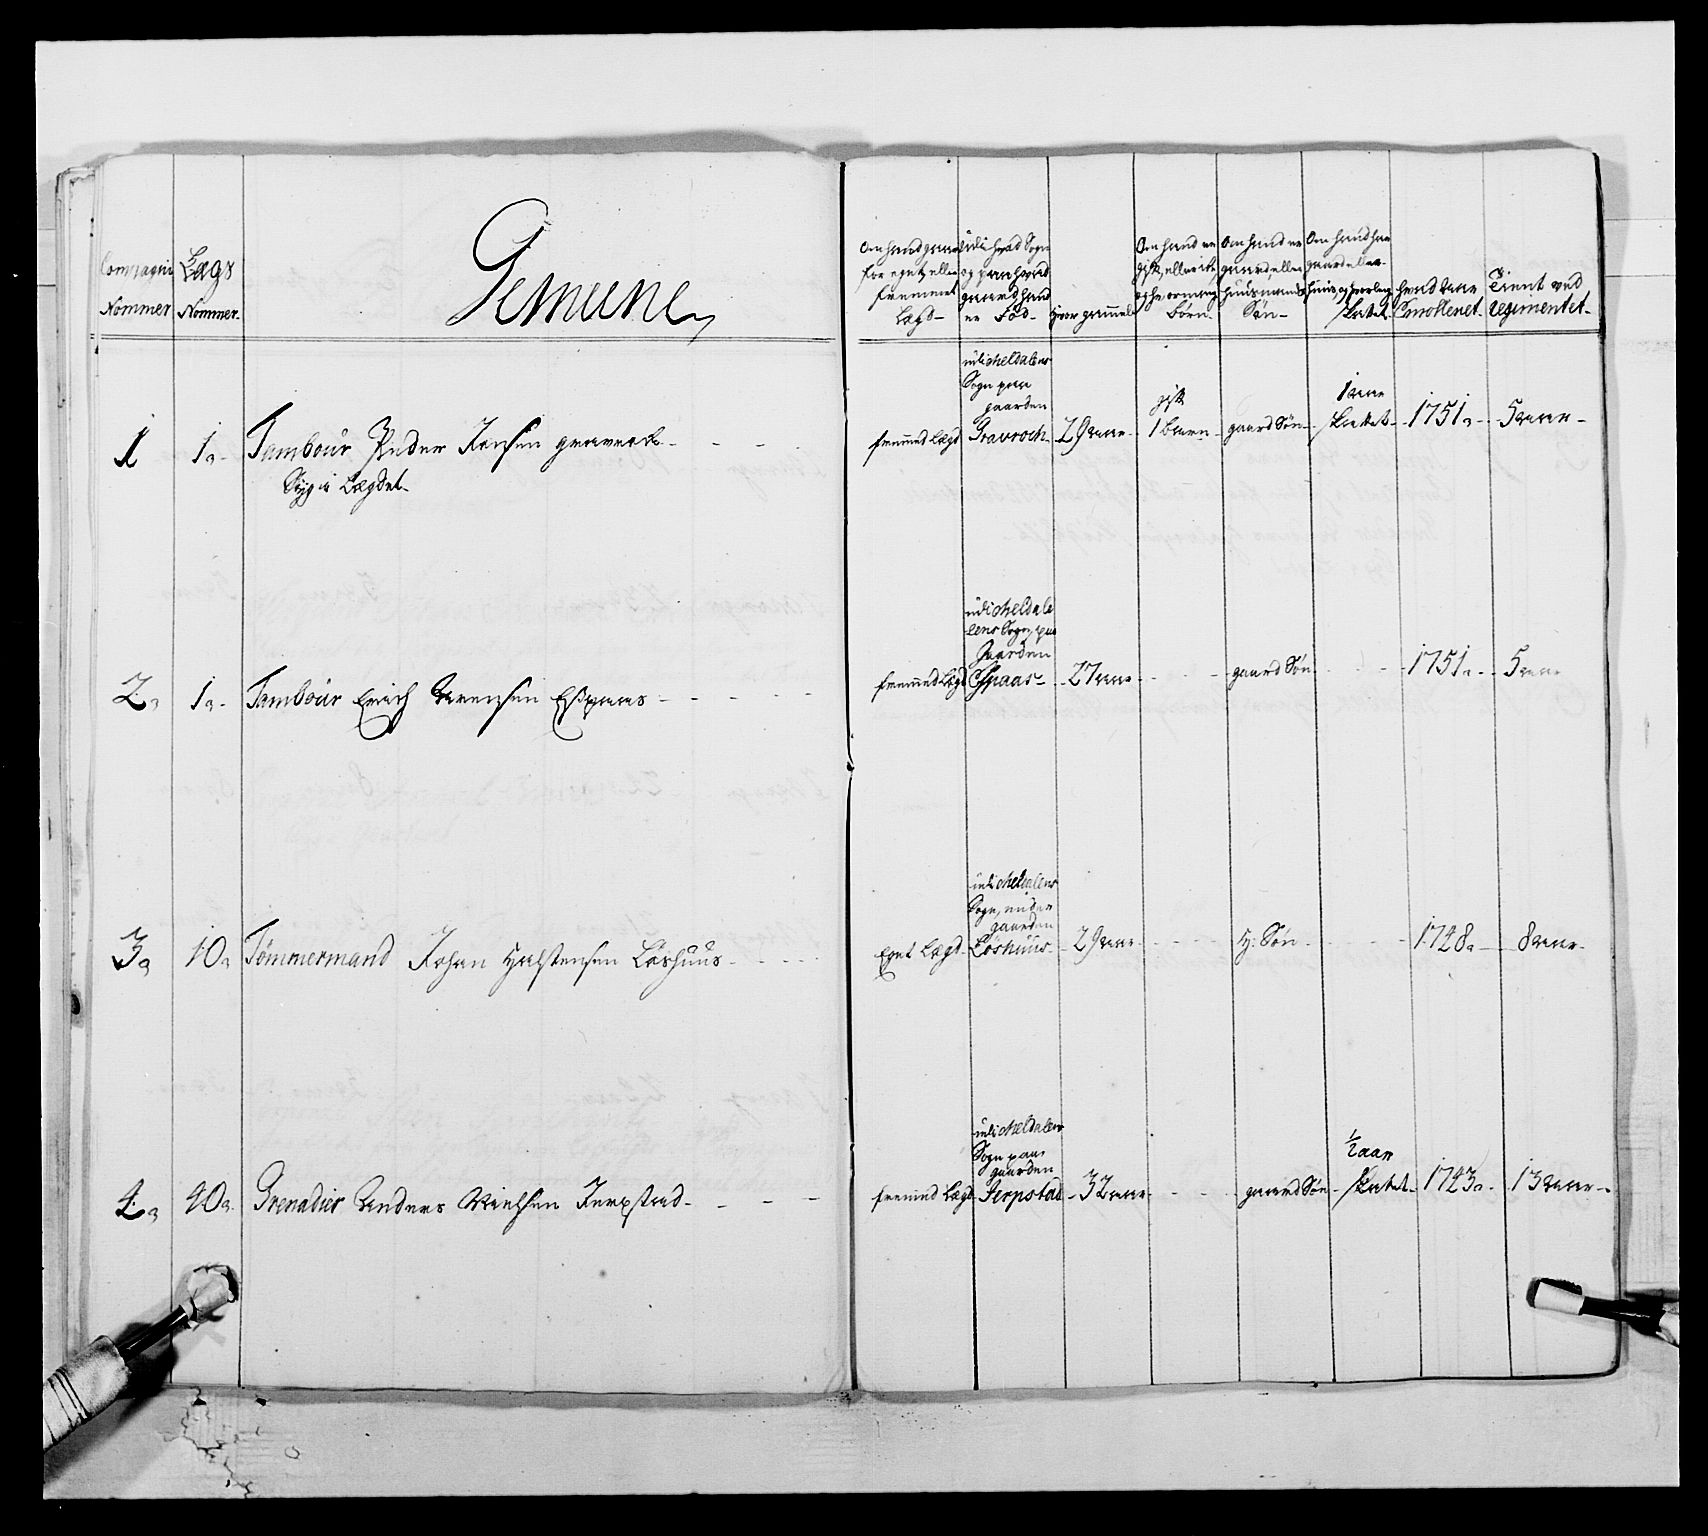 Compagni
Nommer
Lags
Nommer.
Gemene
Om hand gaar
for eget eller
fremmet
Lægd
udi hvad Sogn
og paa hvad
gaard hand
er Fød
Hvor gammel
Om hand er
gift eller ikke
og hvor mange
børn
Om hand er
gaard, eller
huusmands
Søn
Om hand har
gaard eller
huus og hvorlæng
skattet
hvad Aar
Enrollenet
Tient ved
regimentet
1 1. Tambour Peder Jensen gravrock
Syg i Lægdet
fremmed Lægd
udi Meldalens
Sogn paa
gaarden
Gravroch
29 aar
gift
1 barn
gaard Søn
1 aar
skattet
1751. 5 aar
2. 1. Tambour Erich Arensen Espaas
fremmed Lægd
udi Meldal
lens Sogn, paa
gaarden
Espaas
27 aar
gaard Søn
1751. 5 aar
3. 10. Tømmermand Johan Halstensen Løshuus
Eget Lægd
udi Meldalens
Sogn, under
gaarden
Løshuus
29 aar
H: Søn
1748. 8 aar
4. 40. Grenadier Anders Nielsen Jerpstad
fremmed Lægd
udi Meldalens
Sogn paa
gaarden
Jerpstad
32 aar
gaard Søn
1/2 aar
skattet
1743. 13 aar